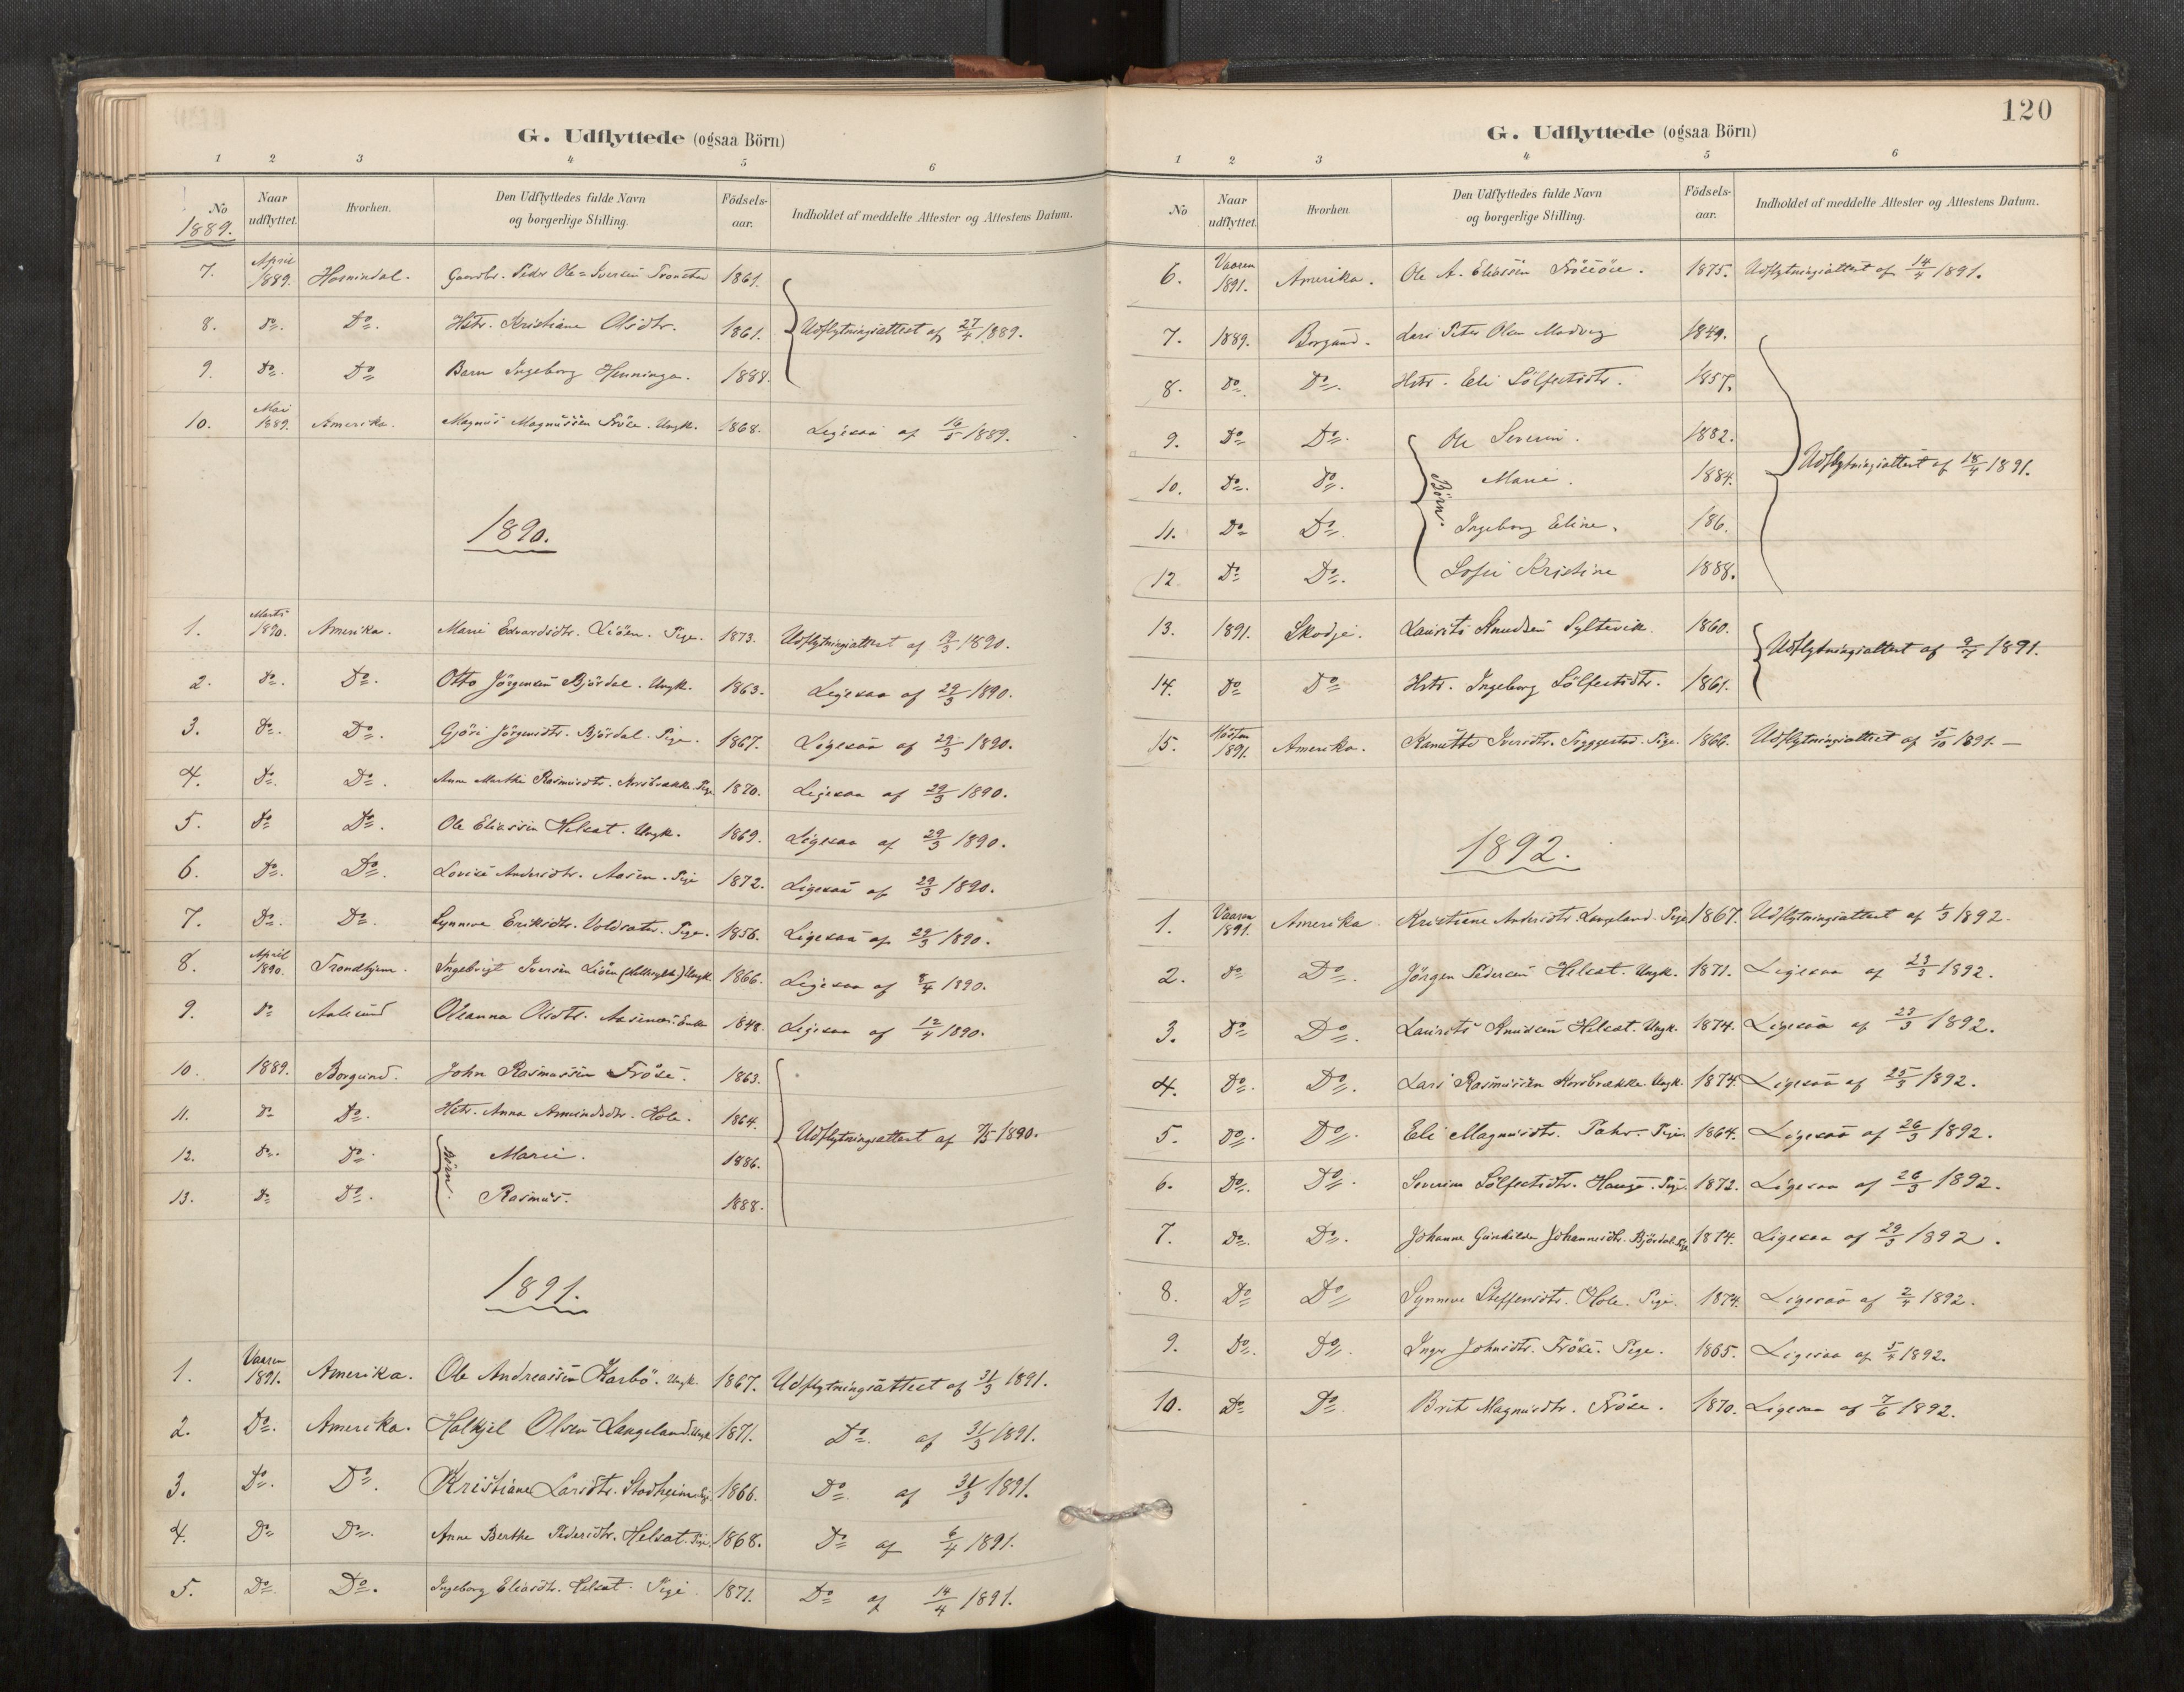 G. Udflyttede (ogsaa Börn)
1 2 3 4 5 6
No Naar udflyttet. Hvorhen. Den Udflyttedes fulde Navn og borgerlige Stilling. Födsels-aar. Indholdet af meddelte Attester og Attestens Datum.
1889.
7. April 1889. Hornindal. Gaardbr. Peder Ole=Iversen 1861.
8. Do. Do. Hstr. Kristiane Olsdtr. 1861. Udflytningsattest af 27/4 1889.
9. Do. Do. Barn Ingeborg Henninga. 1888.
10. Mai 1889. Amerika. Magnus Magnussen Fröse. Ungk. 1868. Ligesaa af 16/5 1889.
1890.
1. Marts 1890. Amerika. Marie Edvardsdtr. Liöen. Pige. 1873. Udflytningsattest af /3 1890.
2. Do. Do. Otto Jörgensen Björdal. Ungk. 1863. Ligesaa af 29/3 1890.
3. Do. Do. Gjöri Jörgensdtr. Björdal. Pige. 1867. Ligesaa af 29/3 1890.
4. Do. Do. Anne Marthe Rasmusdtr. Korsbrække. Pige 1870. Ligesaa af 29/3 1890.
5. Do. Do. Ole Eliassen Helsat. Ungk. 1869. Ligesaa af 29/3 1890.
6. Do. Do. Lovise Andersdtr. Aasen. Pige 1872. Ligesaa af 29/3 1890.
7. Do. Do. Synneve Eriksdtr. Voldsater. Pige. 1856. Ligesaa af 29/3 1890.
8. April 1890. Trondhjem. Ingebrigt Iversen Liöen Ungk 1866. Ligesaa af 8/4 1890.
9. Do Aalesund Oleanna Olsdtr. Enke 1848. Ligesaa af 12/4 1890.
10. 1889. Borgund. John Rasmussen Fröse. 1863.
11. Do Do. Hstr. Anna Amundsdtr. Hole. 1864. Udflytningsattest af 7/5 1890.
12. Do. Do. Börn. Marie. 1886.
13. Do Do. Rasmus. 1888.
1891.
1. Vaaren 1891. Amerika. Ole Andreassen Karbö. Ungk. 1867. Udflytningsattest af 31/3 1891.
2. Do. Amerika. Halkjel Olsen Langeland. Ungk 1871. Do. af 31/3 1891.
3. Do. Do. Kristiane Larsdtr. Stadheim. Pige 1866. Do. af 31/3 1891.
4. Do Do. Anne Berthe Pedersdtr. Helsat. Pige. 1868. Do af 6/4 1891.
5. Do. Do. Ingeborg Eliasdtr. Helsat. Pige. 1871. Do af 14/4 1891.
120
G. Udflyttede (ogsaa Börn)
1 2 3 4 5 6
No Naar udflyttet. Hvorhen. Den Udflyttedes fulde Navn og borgerlige Stilling. Födsels-aar. Indholdet af meddelte Attester og Attestens Datum.
6. Vaaren 1891. Amerika. Ole A. Eliassen 1875. Udflytningsattest af 14/4 1891.
7. 1889. Borgund. Lars Peter Olsen Modvig 1849.
8. Do. Do. Hstr. Eli Sölfestsdtr. 1857.
9. Do Do. Börn. Ole Severin. 1882. Udflytningsattest af 18/4 1891.
10. Do. Do. Marie. 1884.
11. Do Do. Ingeborg Eline. 186.
12. Do Do. Sofie Kristine 1888.
13. 1891. Skodje. Laurits Knudsen Syltevik. 1860. Udflytningsattest af 9/7 1891.
14. Do Do Hstr. Ingeborg Sölfestsdtr. 1861.
15. Hösten 1891. Amerika. Kanutte Iversdtr. Tryggestad. Pige. 1866. Udflytningsattest af 5/10 1891. —
1892.
1. Vaaren 1891. Amerika. Kristiane Andersdtr. Langeland. Pige 1867. Udflytningsattest af 1/3 1892.
2. Do Do. Jörgen Pedersen Helsat. Ungk. 1871. Ligesaa af 23/3 1892.
3. Do Do. Laurits Knudsen Helsat. Ungk. 1874. Ligesaa af 23/3 1892.
4. Do. Do. Lars Rasmussen Korsbrække. Ungk. 1874. Ligesaa af 25/3 1892.
5. Do. Do. Eli Magnusdtr. Pige. 1864. Ligesaa af 26/3 1892.
6. Do. Do. Severine Sölfestsdtr. Hauge. Pige. 1872. Ligesaa af 26/3 1892.
7. Do. Do. Johanne Gunhilda Johannesdtr. Björdal. Pige 1874. Ligesaa af 29/3 1892.
8. Do Do Synneve Steffensdtr. Hole. Pige. 1874. Ligesaa af 2/4 1892.
9. Do. Do. Inger Johnsdtr. Fröse. Pige. 1865. Ligesaa af 5/4 1892.
10. Do Do Brit Magnusdtr. Fröse. 1870. Ligesaa af 7/6 1892.